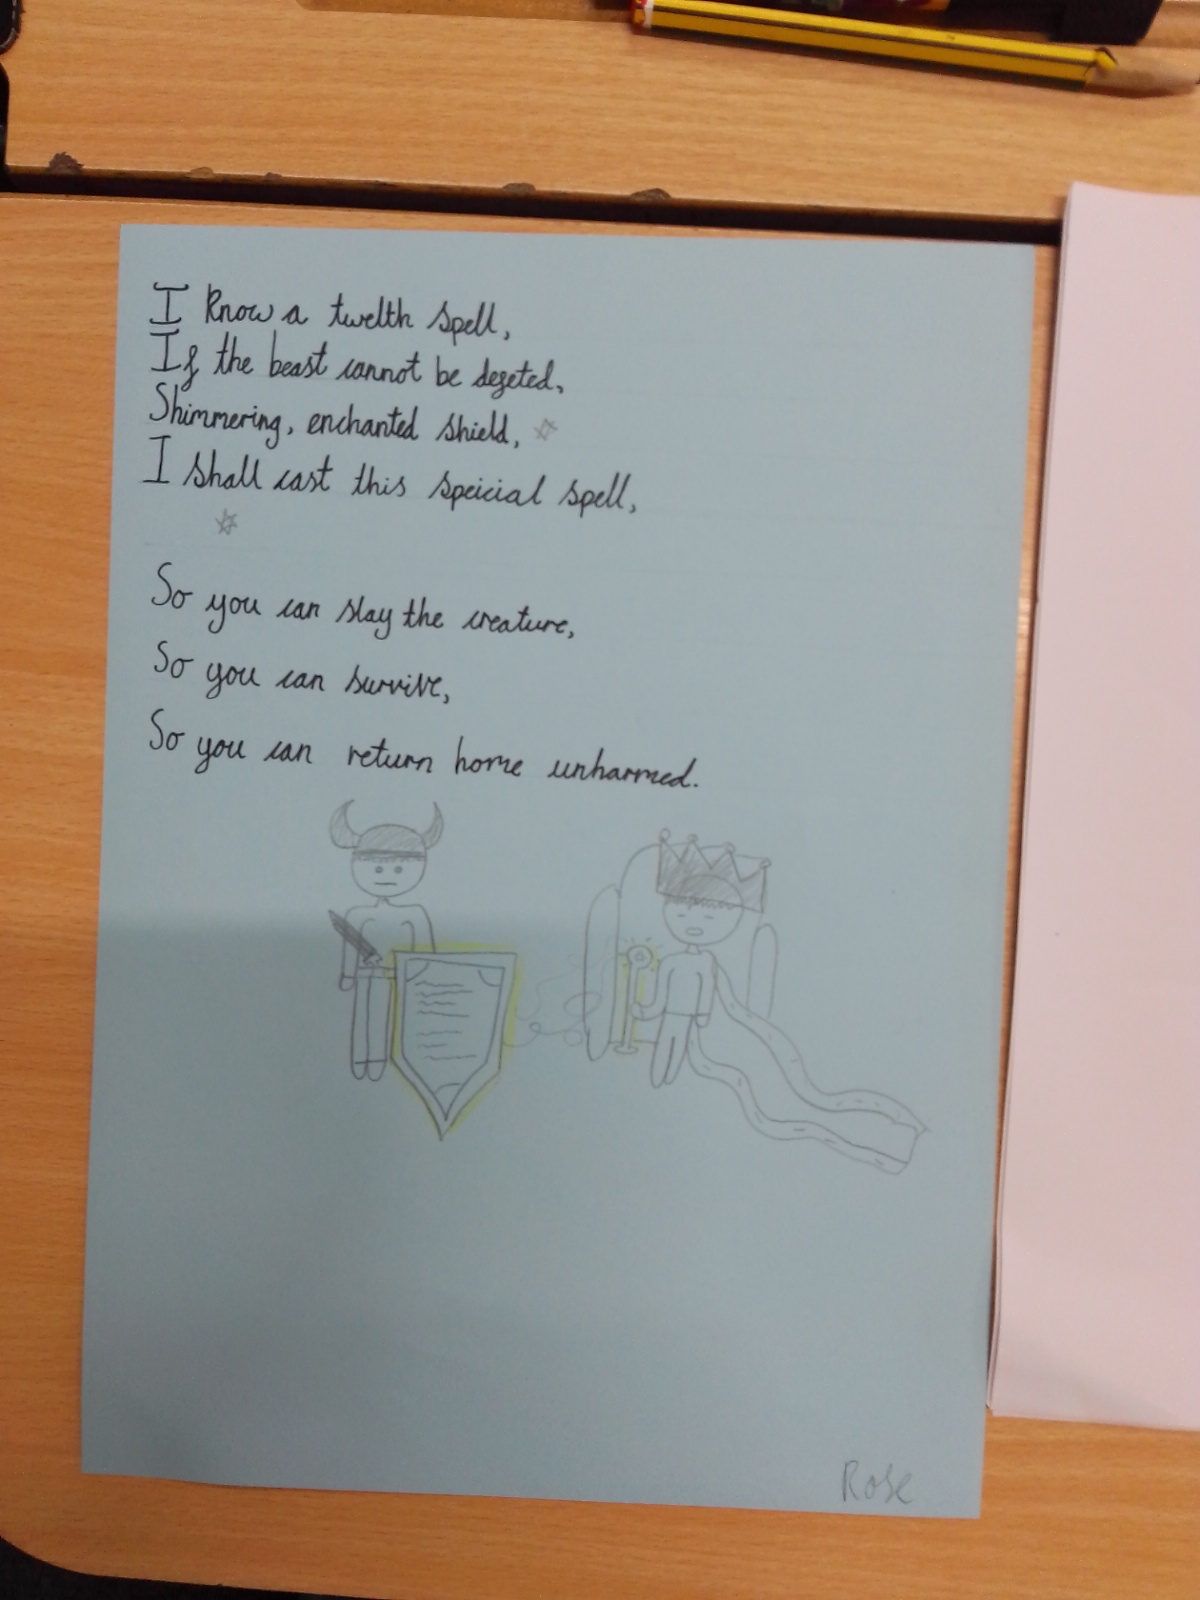 I know a twelth spell,
If the beast cannot be defeted,
Shimmering, enchanted shield,
I shall cast this speicial spell,
So you can slay the creature,
So you can survive,
So you can return home unharmed.
Rose